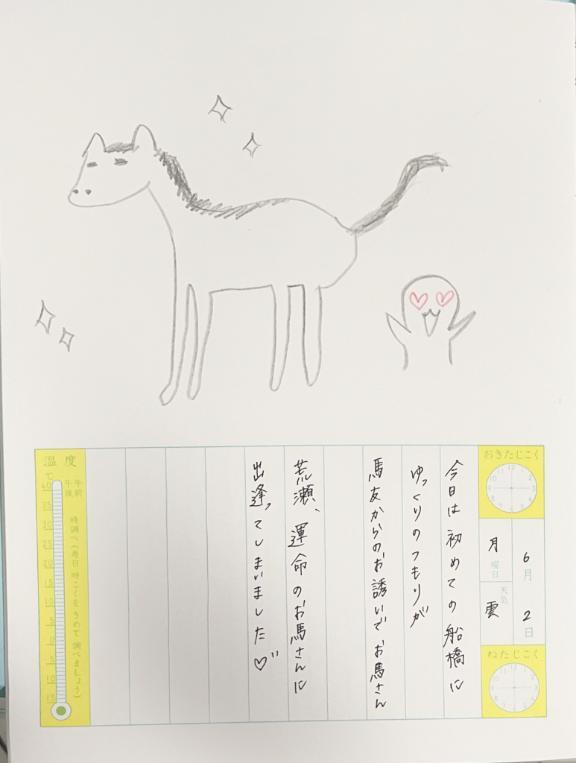 おきたじこく
6月2日
月曜日
天気
雲
ねたじこく
今日は初めての船橋に
ゆっくりのつもりが
馬友からのお誘いでお馬さん
荒瀬、運命のお馬さんに
出逢ってしまいました♡"
温度
℃
午前
午後
時調べ(毎日時こくをきめて調べましょう)